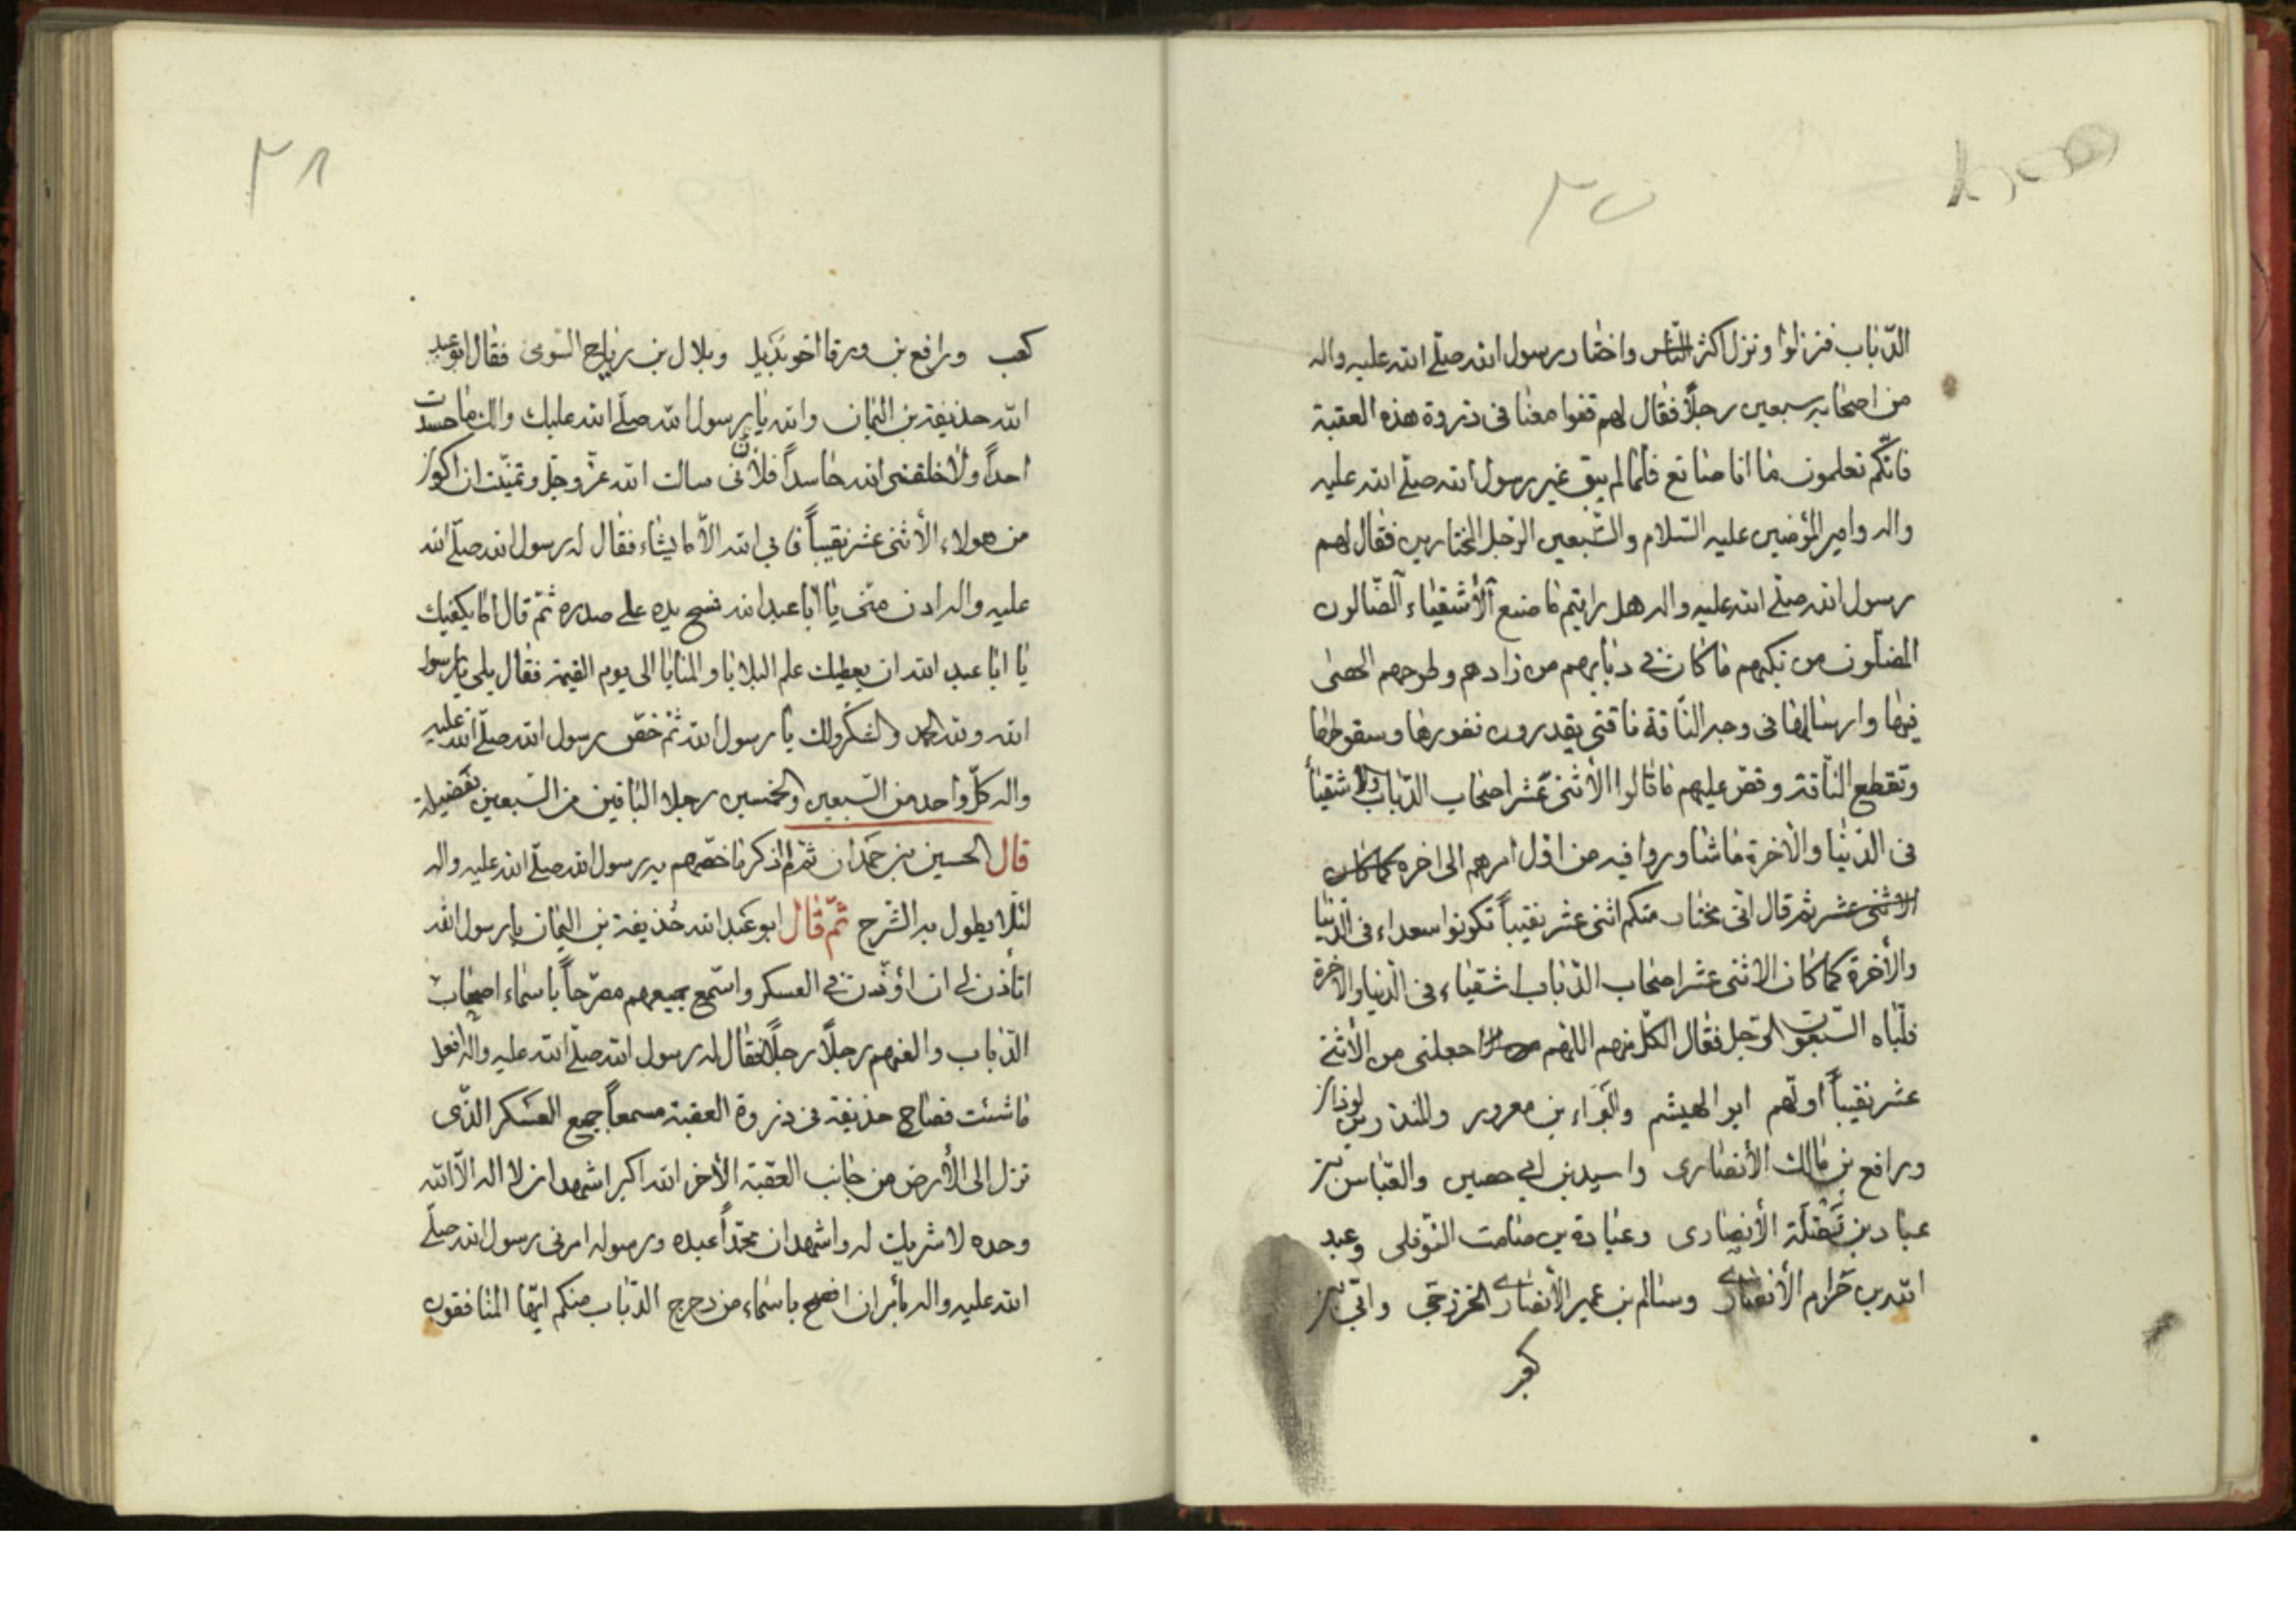 الدّباب فنزلوا ونزل اكثر الناس واختار رسول الله صلّى الله عليه واله
من اصحابه سبعين رجلاً فقال لهم قفوا معنا فى ذروة هذه العقبة
فانّكم تعلمون ما انا صانع فلما لم يبق غير رسول الله صلّى الله عليه
واله وامير المؤمنين عليه السّلام والسّبعين الرّجل المختارين فقال لهم
رسول الله صلّى الله عليه واله هل رايتم ما صنع الأشقياء الضّالون
المضلّون من تكبهم ما كان فى دبابهم من زادهم وطرحهم الحصى
فيها وارسالها فى وجه النّاقة ناقتى يقدرون نفورها وسقوطها
وتقطع النّاقة وقصّ عليهم ما قالوا الأثنى عشر اصحاب الدّباب والاشقيأ
فى الدّنيا والأخرة ما شاوروا فيه من اوّل امرهم الى اخره كما كان
الاثنى عشر ثم قال انّى مختار منكم اثنى عشر نقيباً تكونوا سعداء فى الدّنيا
والأخرة كما كان الاثنى عشر اصحاب الدّباب اشقياء فى الدّنيا والاخرة
فلبّاه السّبعون الرّجل فقال الكلّ منهم اللهم اجعلنى من الأثنى
عشر نقيباً اولّهم ابو الهيثم والبَرَاء بن معرور والمنذر بن لوذان
ورافع بن مالك الأنصارى واسيد بن ابى حصين والعّباس بن
عبادبن نَضْلَة الأنصارى وعبادة بن صامت النّوفلى وعبد
الله بن حَرام الأنصارى وسالم بن عمير الأنصارى الخزرجى وابّى بن
كعب
٣٨
كعب ورافع بن ورقا اخو بُدَيل وبلال بن رياح السّوى فقال ابو عبد
الله حذيفة بن اليمان والله يا رسول الله صلّى الله عليك والك ما حسدت
احداً ولا خلقنى الله حاسداً فلأنّى سالت الله عزّ وجلّ وتمنّيت ان اكون
من هولاء الأثنى عشر نقيباً فابى الله الاّ ما يشاء فقال له رسول الله صلّى الله
عليه واله ادن منّى يا ابا عبد الله فمسح يده على صدره ثمّ قال اما يكفيك
يا ابا عبد الله ان يعطيك علم البلايا والمنايا الى يوم القيمة فقال بلى يا رسول
الله ولله الحمد والشكر ولك يا رسول الله ثمّ خصّ رسول الله صلّى الله عليه
واله كلّ واحد من السّبعين والخمسين رجلا الباقين من السّبعين بفضيلة
قال الحسين بن حَمدان ثمّ لم اذكر ما خصّهم به رسول الله صلّى الله عليه واله
لئلا يطول به الشّرح ثمّ قال ابو عَبد الله حُذيفة بن اليمان يا رسول الله
اتأذن لى ان اؤذّن فى العسكر واسّمع جميعهم مصرّحاً باسماء اصحاب
الدّباب والعنهم رجلاً رجلاً فقال له رسول الله صلّى الله عليه واله افعل
ما شئت فصاح حذيفة فى ذروة العقبة مسمعاً جميع العسكر الذّى
نزل الى الأرض من جانب العقبة الأخر الله اكبر اشهد ان لا اله الاّ الله
وحده لا شريك له واشهد ان محمّداً عبده ورسوله امرنى رسول الله صلّى
الله عليه واله بأمر ان افصح باسماء من دحرج الدّباب منكم ايّها المنافقون